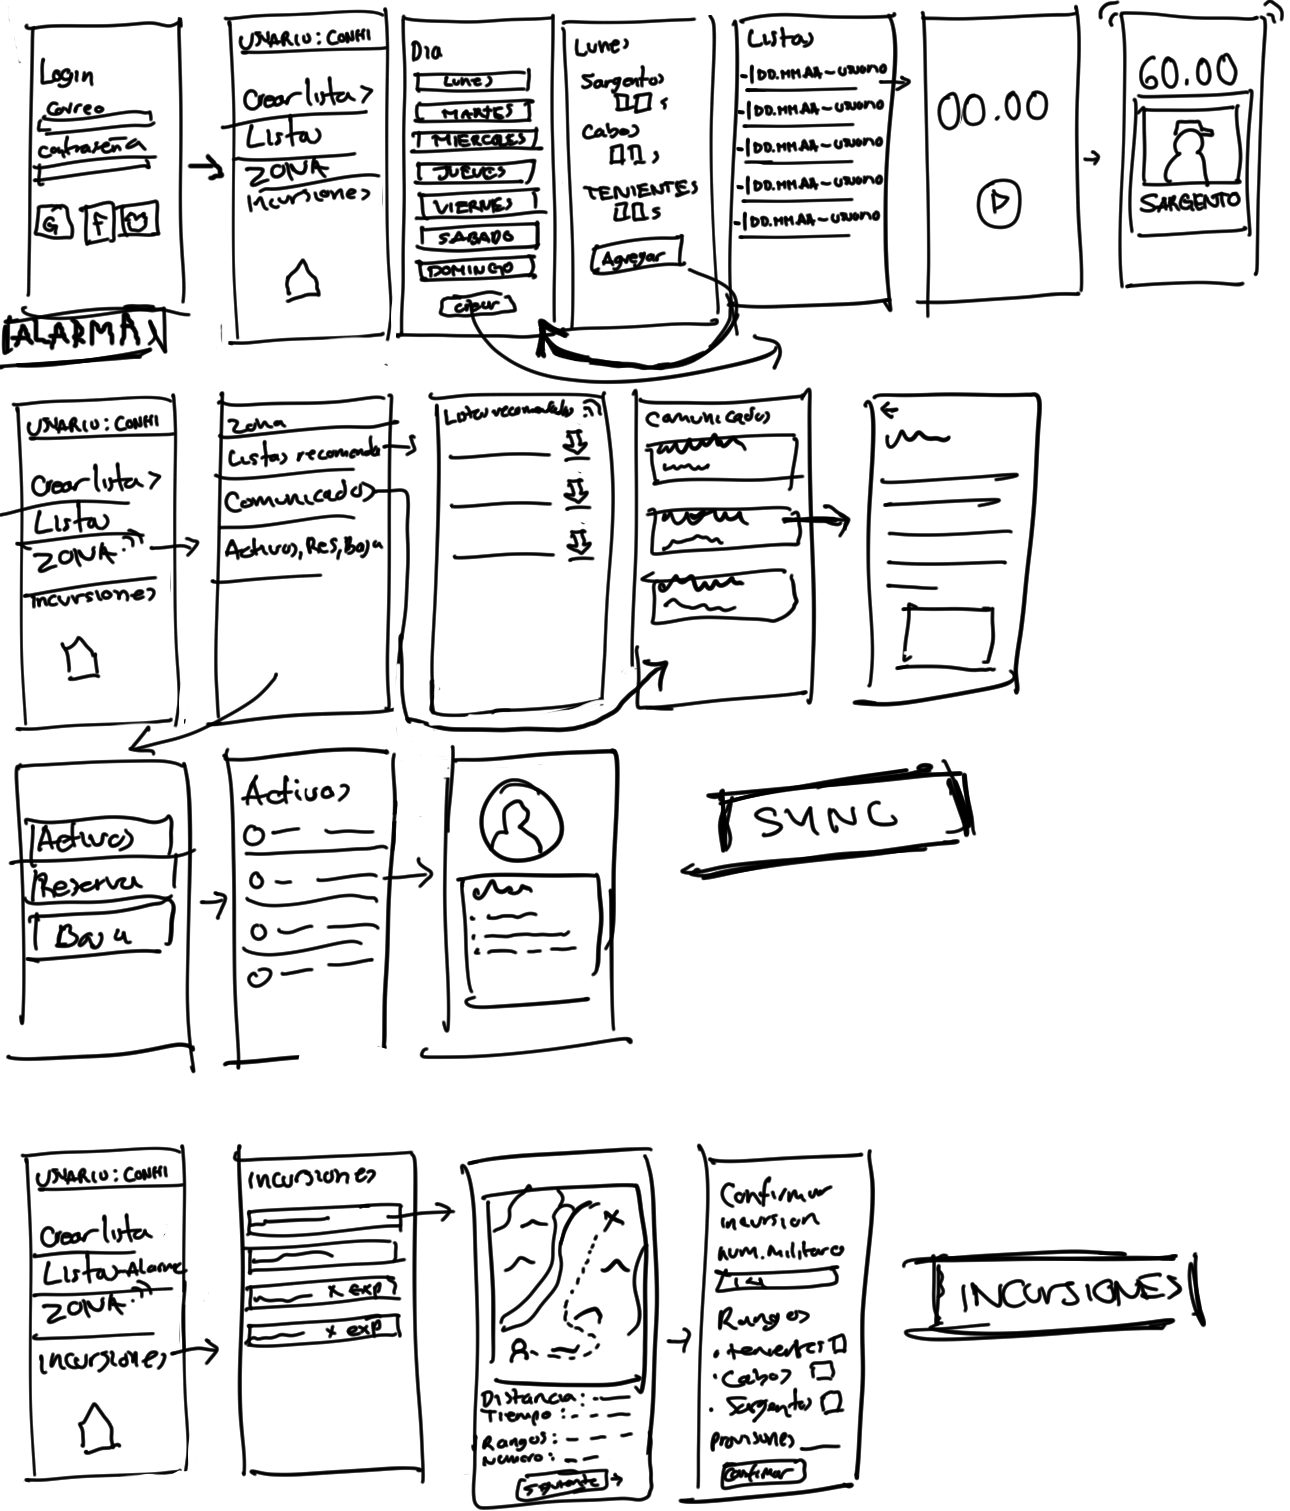 Login
Correo
Contraseña
G F
ALARMA
USUARIO: CONHI
Crear listas
Listas
ZONA
Incursiones
Dia
LUNES
MARTES
MIERCOLES
JUEVES
VIERNES
SABADO
DOMINGO
Crear
Lunes
Sargentos
s
Cabos
s
TENIENTES
s
Agregar
Listas
-|DD.MM.AA-USUARIO
-|DD.MM.AA-USUARIO
-|DD.MM.AA-USUARIO
-|DD.MM.AA-USUARIO
-|DD.MM.AA-USUARIO
00.00
60.00
SARGENTO
USUARIO: CONHI
Crear listas
Listas
ZONA
Incursiones
Zona
Listas recomenda
Comunicados
Activos, Res, Baja
Listas recomendadas
Comunicados
Activos
Reserva
Baja
Activos
SYNC
USUARIO: CONHI
Crear lista
Listas-Alarma
ZONA
Incursiones
Incursiones
x exp
x exp
Distancia:
Tiempo:
Rangos:
Numero:
Siguiente
Confirmar
incursion
num. militares
Rangos
• tenientes
• Cabos
• Sargentos
Provisiones
Confirmar
INCURSIONES